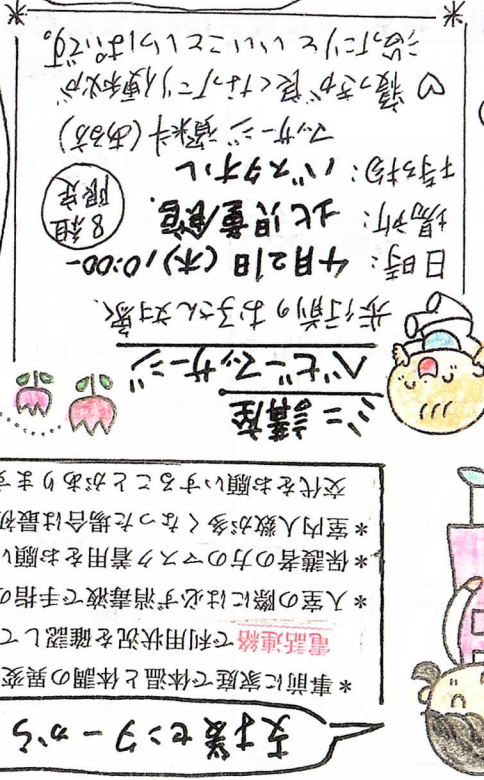 支援センターから
＊事前に家庭で体温と体調の異変
電話連絡で利用状況を確認して
＊入室の際には必ず消毒液で手指の
＊保護者の方のマスク着用をお願い
＊室内人数が多くなった場合は最初
交代をお願いすることがあります
ミニ講座
ベビーマッサージ
歩行前のお子さん対象、
日時：4月21日（木）10:00~
場所：北児童館、
持ち物：バスタオル
マッサージ資料（ある方）
8組限定
♡寝つきが良くなったり便秘が
治ったりといいこといっぱいです。